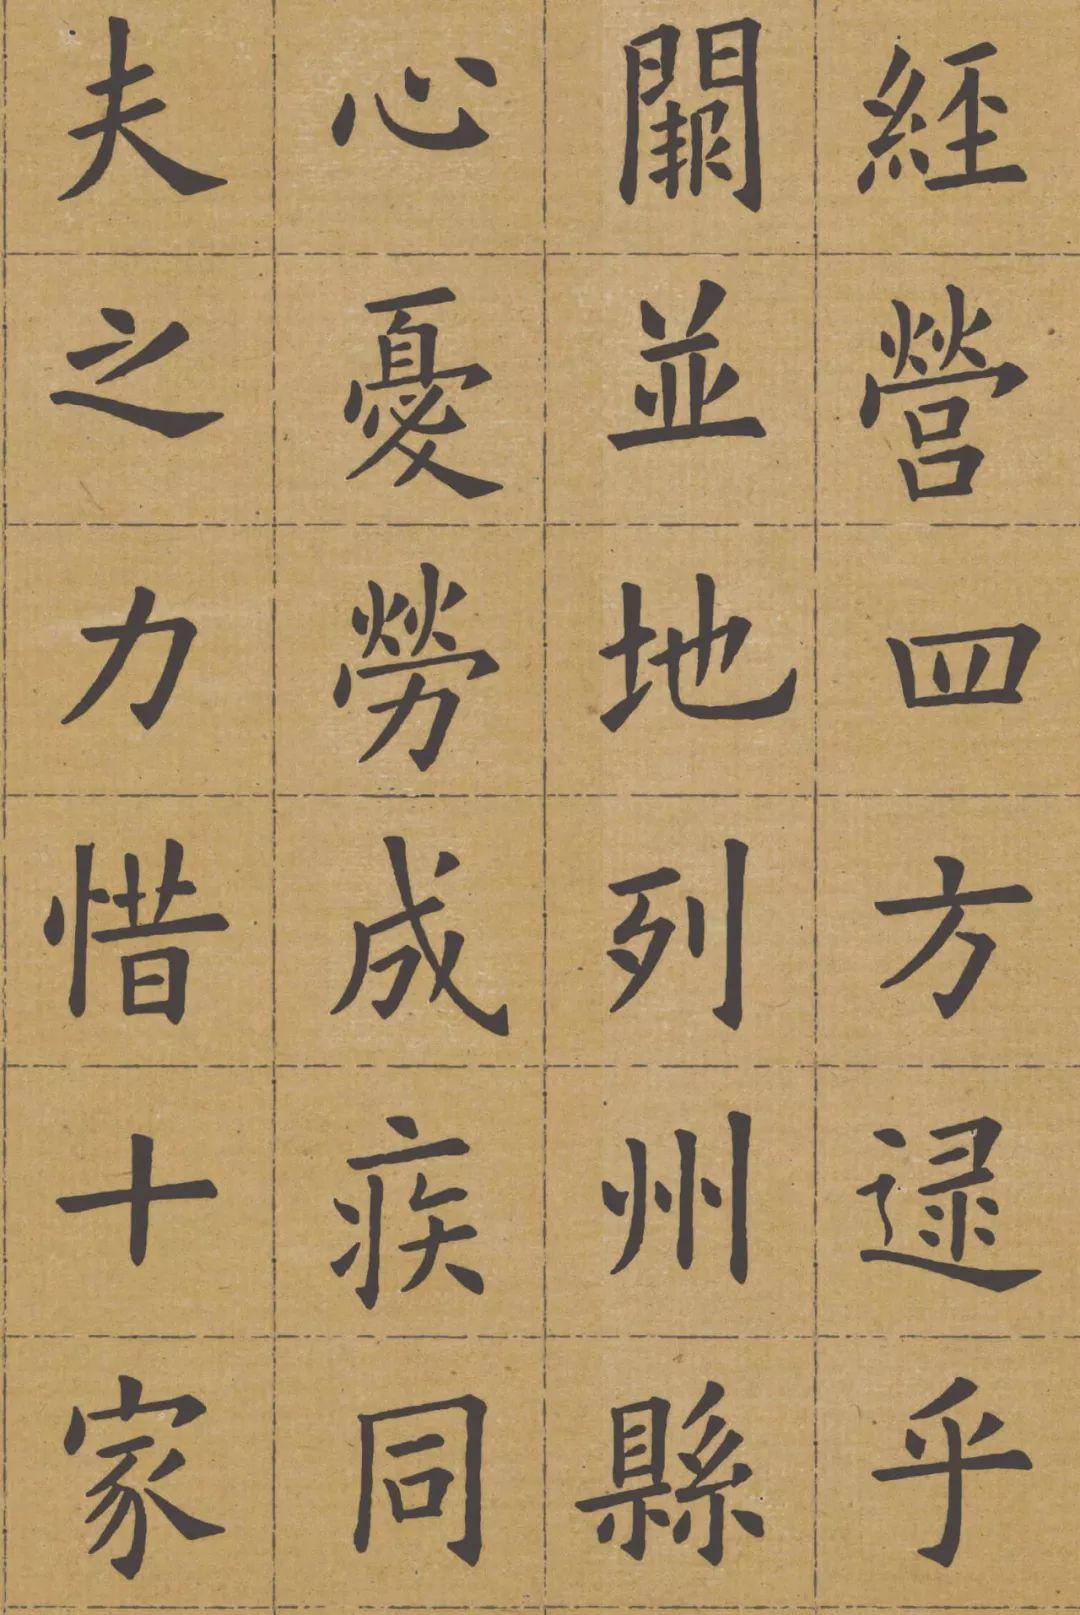 經營四方逮乎
闢並地列州縣
心憂勞成疾同
夫之力惜十家